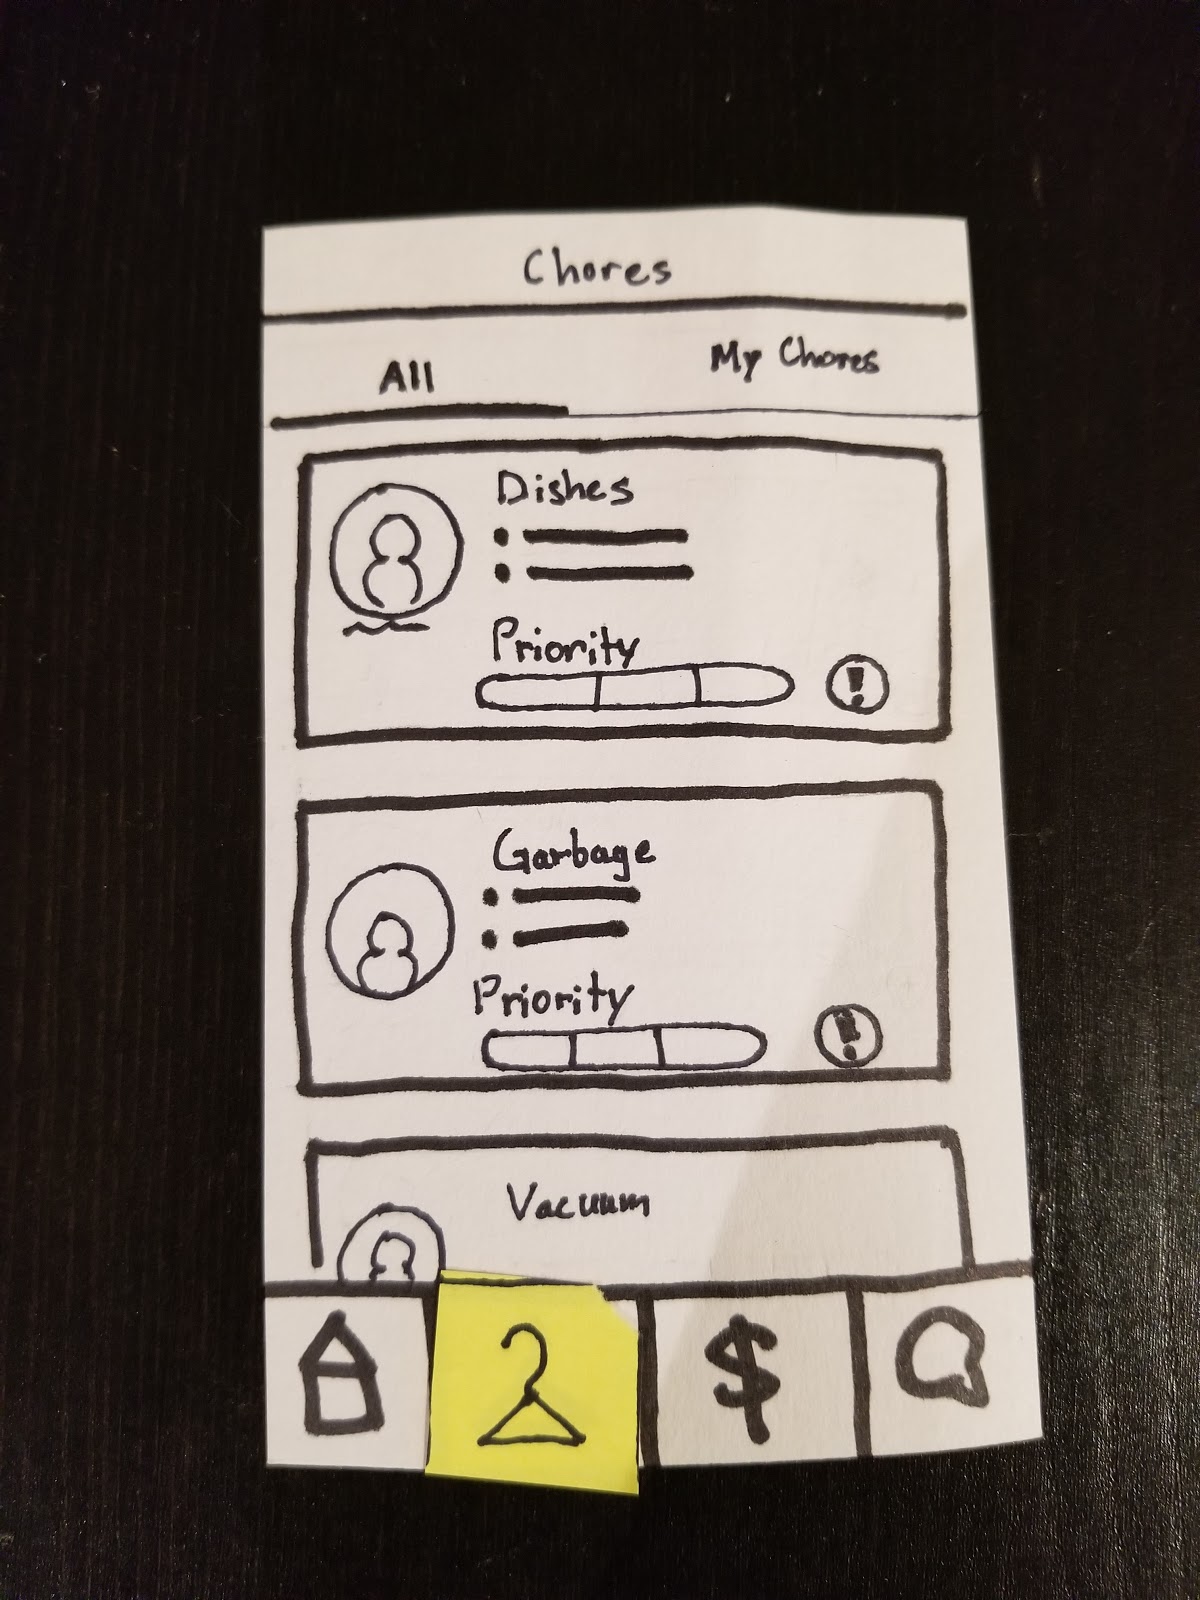 Chores
All
My Chores
Dishes
Priority
!
Garbage
Priority
!
Vacuum
$